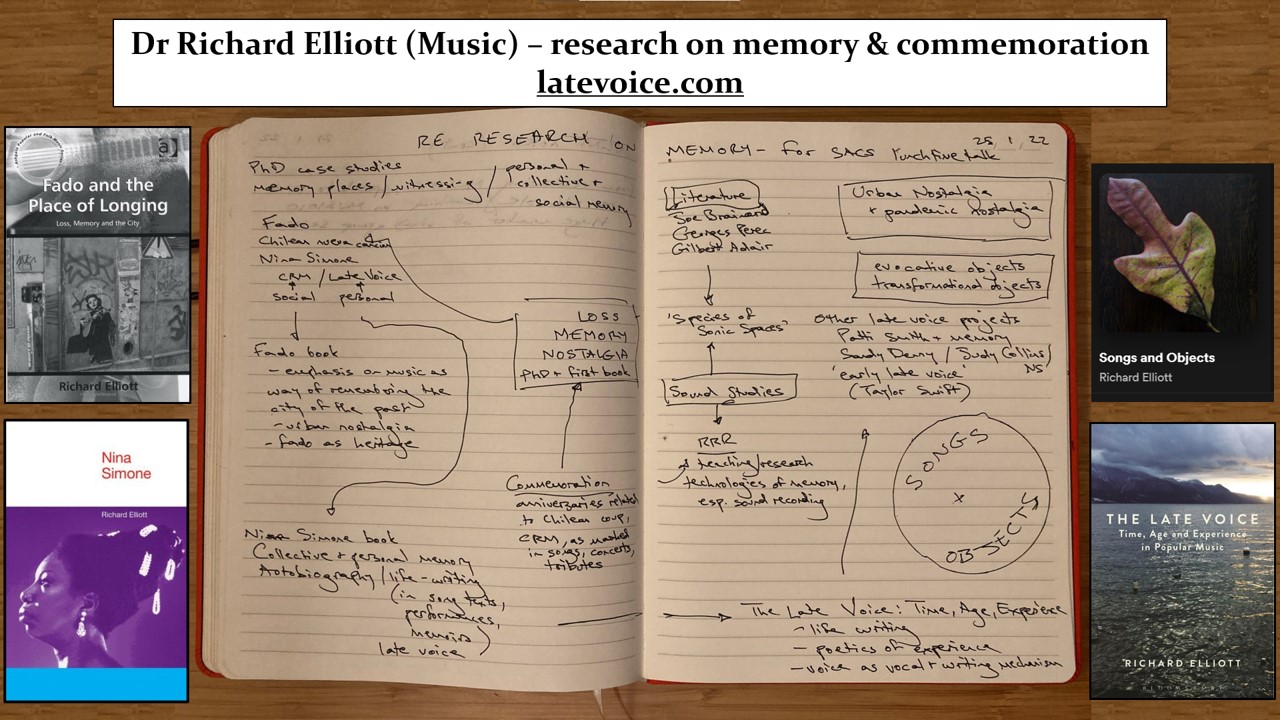 Dr Richard Elliott (Music) – research on memory & commemoration
latevoice.com
Fado and the
Place of Longing
Loss, Memory and the City
Richard Elliott
Nina
Simone
Richard Elliott
RE RESEARCH ON
PhD case studies
memory places / witnessing / personal +
collective +
social memory
Fado
Chilean nueva canción
Nina Simone
CRM / Late Voice
social personal
LOSS
MEMORY
NOSTALGIA
PhD + first book
Fado book
- emphasis on music as
way of remembering the
city of the past
- urban nostalgia
- fado as heritage
Commemoration
anniversaries related
to Chilean coup,
CRM, as marked
in songs, concerts,
tributes
Nina Simone book
Collective + personal memory
Autobiography / life-writing
(in song texts,
performances,
memoirs)
late voice
MEMORY – for SACS lunchtime talk
25, 1, 22
Literature
Joe Brainard
Georges Perec
Gilbert Adair
'Species of
Sonic Spaces'
Sound Studies
RRR
teaching/research
technologies of memory,
esp. sound recording
Urban Nostalgia
+ pandemic nostalgia
evocative objects
transformational objects
Other late voice projects
Patti Smith + memory
Sandy Denny / Judy Collins /
NS
'early late voice'
(Taylor Swift)
SONGS
x
OBJECTS
The Late Voice: Time, Age, Experience
- life writing
- poetics of experience
- voice as vocal + writing mechanism
Songs and Objects
Richard Elliott
THE LATE VOICE
Time, Age and Experience
in Popular Music
RICHARD ELLIOTT
BLOOMSBURY